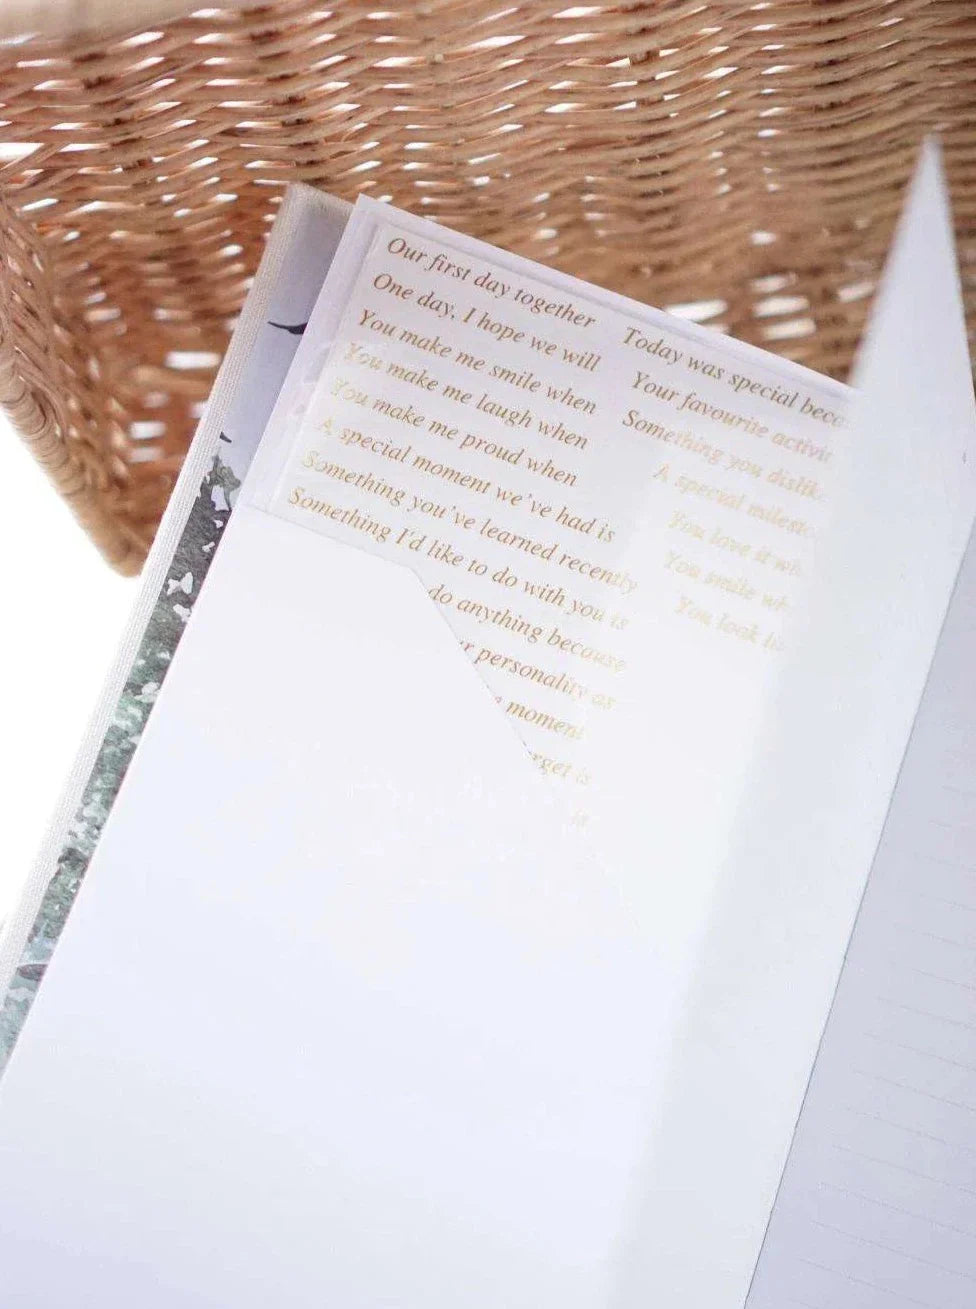 Our first day together
One day, I hope we will
You make me smile when
You make me laugh when
You make me proud when
A special moment we've had is
Something you've learned recently
Something I'd like to do with you is
do anything because
personality as
moment
is
Today was special
Your favourite
Something you
A special
You love it
You smile
You look